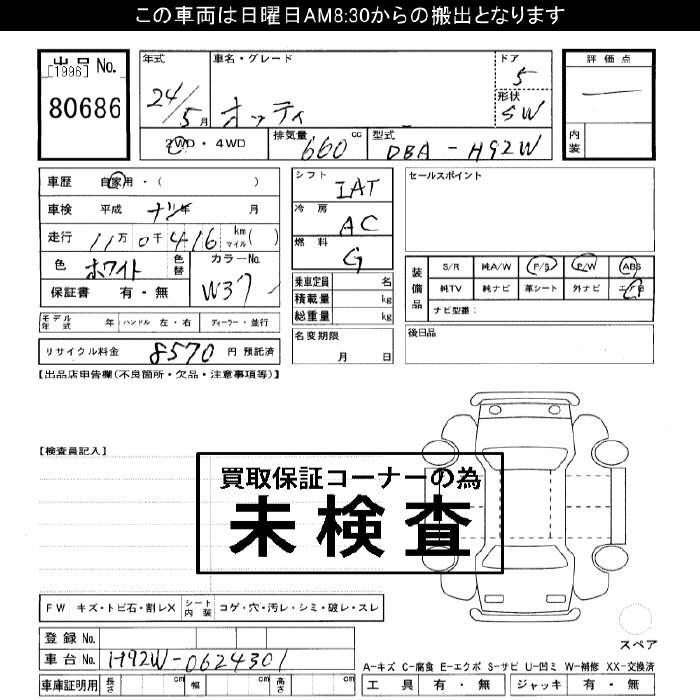 この車両は日曜日AM8:30からの搬出となります
出品 No.
[1996]
80686
年式
24/5月
車名・グレード
オッティ
ドア
5
形状
SW
2WD・4WD
排気量
660 cc
型式
DBA-H92W
評価点
内装
車歴 自家用・( )
車検 平成 ナシ年 月
走行 11万0千416 km マイル( )
色 ホワイト
色替
カラーNo.
W37
保証書 有・無
モデル年式 年
ハンドル 左・右
ディーラー・並行
リサイクル料金 8570 円 預託済
シフト
IAT
冷房
AC
燃料
G
乗車定員 名
積載量 kg
総重量 kg
名変期限
月 日
セールスポイント
装備品
S/R 純A/W P/S P/W ABS
純TV 純ナビ 革シート 外ナビ
ナビ型番:
後日品
【出品店申告欄(不良箇所・欠品・注意事項等)】
【検査員記入】
買取保証コーナーの為
未検査
FW キズ・トビ石・割レX
シート内装
コゲ・穴・汚レ・シミ・破レ・スレ
登録 No.
車台 No. H92W-0624301
車庫証明用 長さ cm 幅 cm 高さ cm
スペア
A-キズ C-腐食 E-エクボ S-サビ U-凹ミ W-補修 XX-交換済
工具 有・無 ジャッキ 有・無